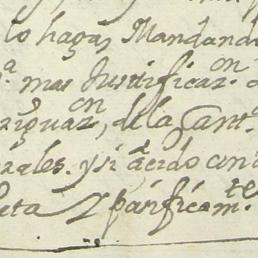 lo haga, Mandando
mas Justificaz.on
riguaz.on, de la Cant.
reales. y si a cido con
eta Y pasificam.te